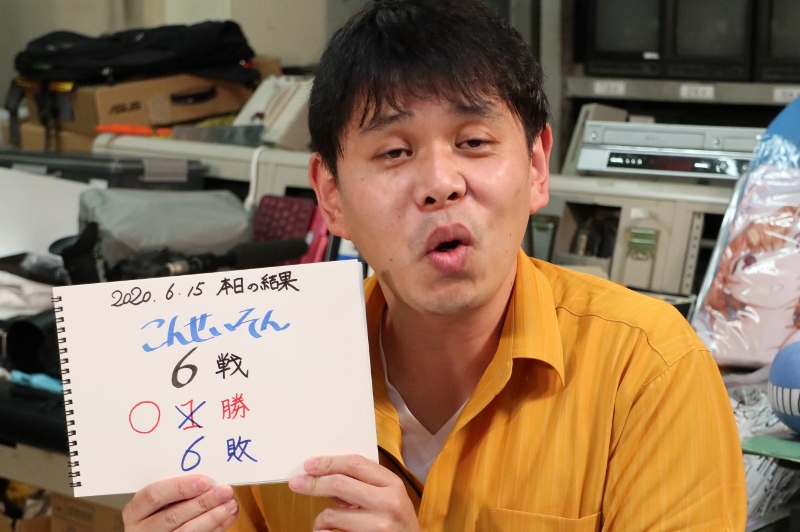 2020.6.15 本日の結果
こんせいそん
6戦
〇1勝
6敗
ASUS